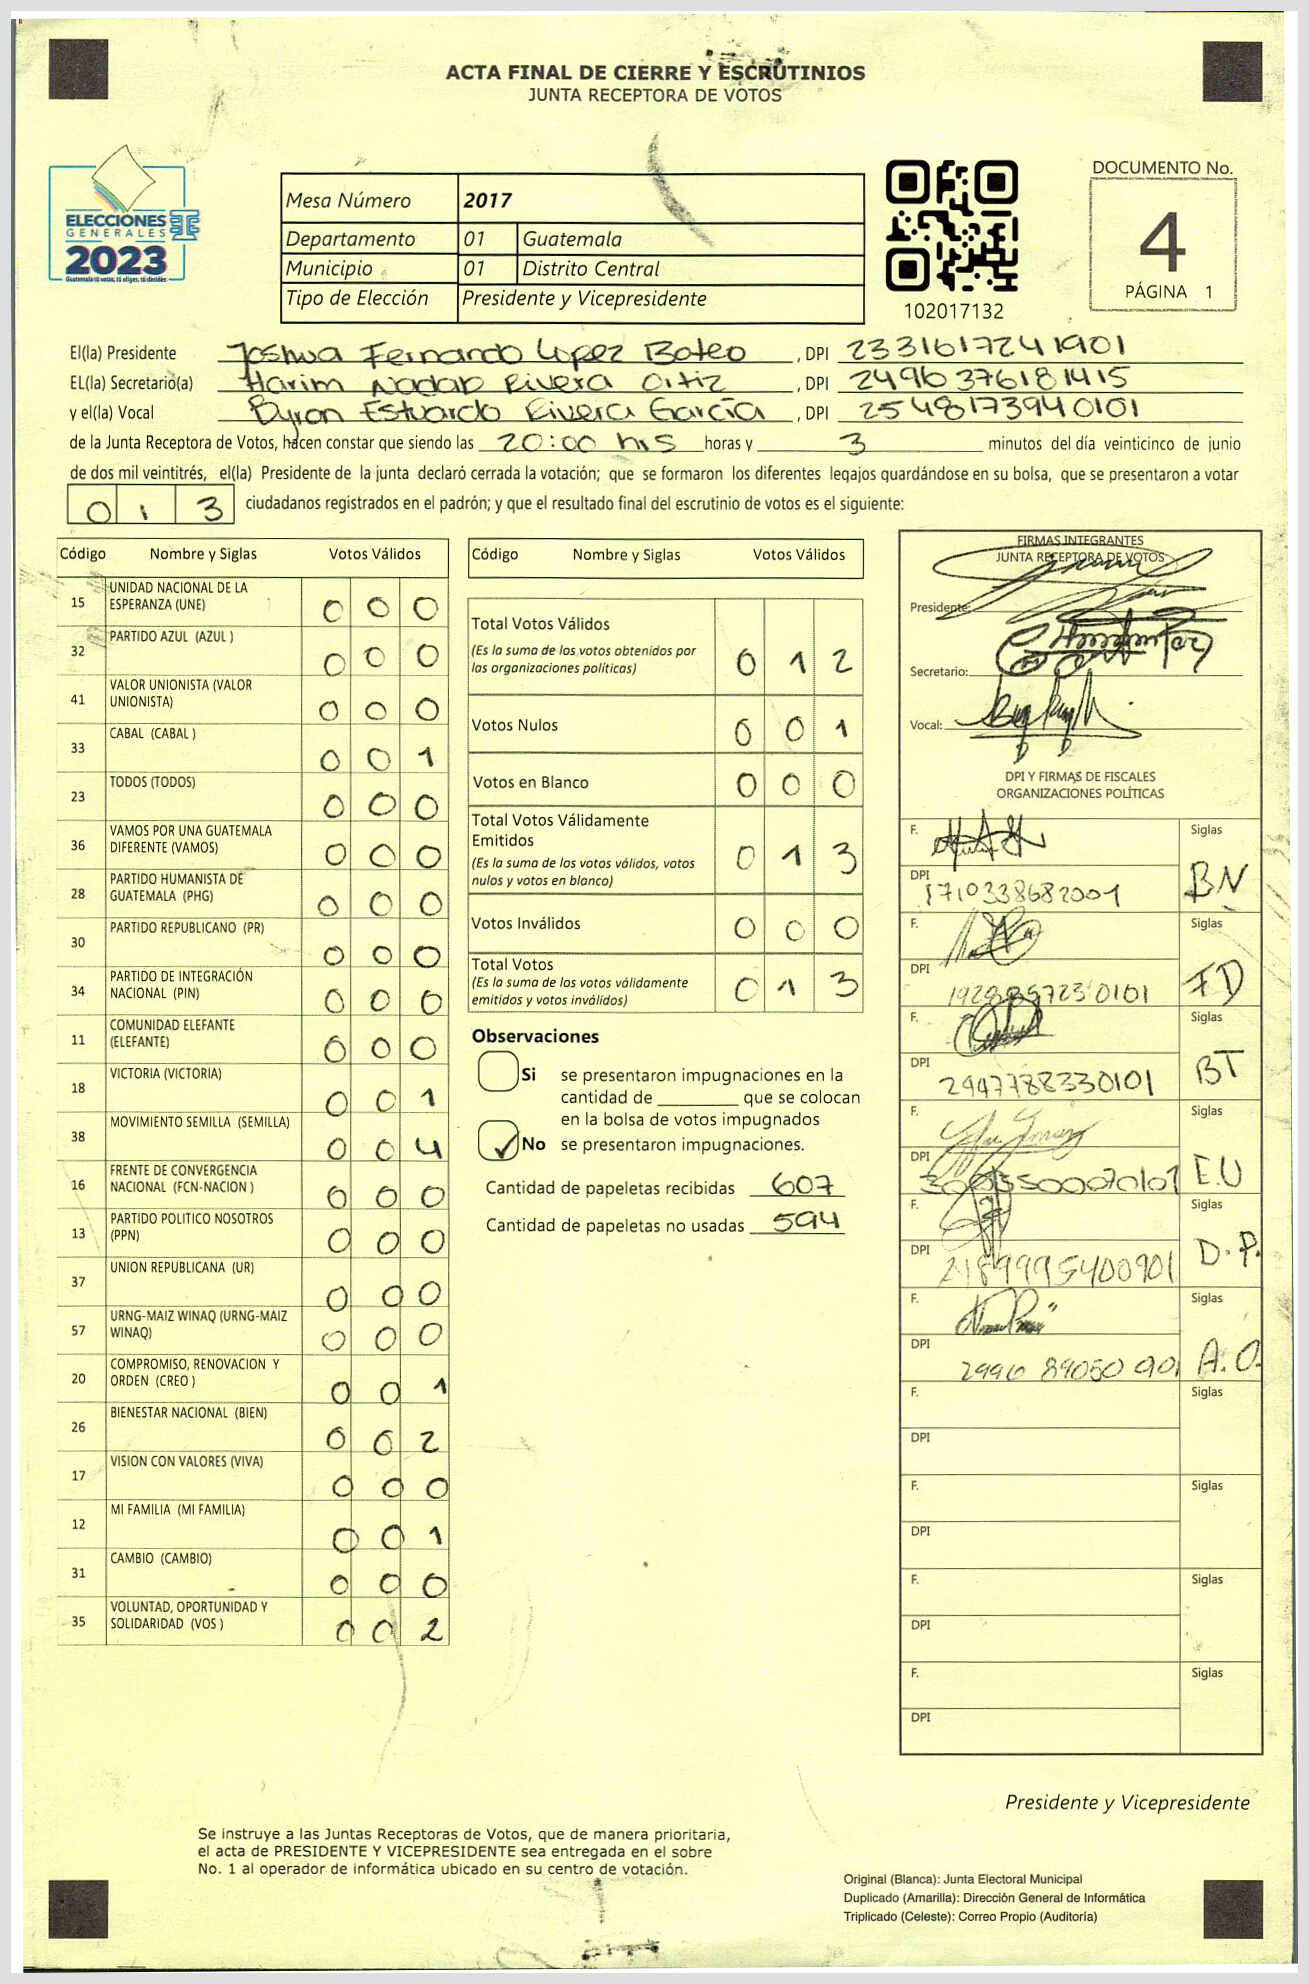 ACTA FINAL DE CIERRE Y ESCRUTINIOS
JUNTA RECEPTORA DE VOTOS
ELECCIONES
GENERALES
2023
Mesa Número 2017
Departamento 01 Guatemala
Municipio 01 Distrito Central
Tipo de Elección Presidente y Vicepresidente
102017132
DOCUMENTO No.
4
PÁGINA 1
El(la) Presidente Joshua Fernando Lopez Boteo , DPI 2331617241901
EL(la) Secretario(a) Harim Nadab Rivera Ortiz , DPI 2496376181415
y el(la) Vocal Byron Estuardo Rivera García , DPI 2548173940101
de la Junta Receptora de Votos, hacen constar que siendo las 20:00 hrs horas y 3 minutos del día veinticinco de junio
de dos mil veintitrés, el(la) Presidente de la junta declaró cerrada la votación; que se formaron los diferentes legajos guardándose en su bolsa, que se presentaron a votar
0 1 3 ciudadanos registrados en el padrón; y que el resultado final del escrutinio de votos es el siguiente:
Código Nombre y Siglas Votos Válidos
15 UNIDAD NACIONAL DE LA ESPERANZA (UNE) 0 0 0
32 PARTIDO AZUL (AZUL ) 0 0 0
41 VALOR UNIONISTA (VALOR UNIONISTA) 0 0 0
33 CABAL (CABAL ) 0 0 1
23 TODOS (TODOS) 0 0 0
36 VAMOS POR UNA GUATEMALA DIFERENTE (VAMOS) 0 0 0
28 PARTIDO HUMANISTA DE GUATEMALA (PHG) 0 0 0
30 PARTIDO REPUBLICANO (PR) 0 0 0
34 PARTIDO DE INTEGRACIÓN NACIONAL (PIN) 0 0 0
11 COMUNIDAD ELEFANTE (ELEFANTE) 0 0 0
18 VICTORIA (VICTORIA) 0 0 1
38 MOVIMIENTO SEMILLA (SEMILLA) 0 0 4
16 FRENTE DE CONVERGENCIA NACIONAL (FCN-NACION ) 0 0 0
13 PARTIDO POLITICO NOSOTROS (PPN) 0 0 0
37 UNION REPUBLICANA (UR) 0 0 0
57 URNG-MAIZ WINAQ (URNG-MAIZ WINAQ) 0 0 0
20 COMPROMISO, RENOVACION Y ORDEN (CREO ) 0 0 1
26 BIENESTAR NACIONAL (BIEN) 0 0 2
17 VISION CON VALORES (VIVA) 0 0 0
12 MI FAMILIA (MI FAMILIA) 0 0 1
31 CAMBIO (CAMBIO) 0 0 0
35 VOLUNTAD, OPORTUNIDAD Y SOLIDARIDAD (VOS ) 0 0 2
Código Nombre y Siglas Votos Válidos
Total Votos Válidos 0 1 2
(Es la suma de los votos obtenidos por
las organizaciones políticas)
Votos Nulos 0 0 1
Votos en Blanco 0 0 0
Total Votos Válidamente
Emitidos 0 1 3
(Es la suma de los votos válidos, votos
nulos y votos en blanco)
Votos Inválidos 0 0 0
Total Votos 0 1 3
(Es la suma de los votos válidamente
emitidos y votos inválidos)
Observaciones
Si se presentaron impugnaciones en la
cantidad de ________ que se colocan
en la bolsa de votos impugnados
✓ No se presentaron impugnaciones.
Cantidad de papeletas recibidas 607
Cantidad de papeletas no usadas 594
FIRMAS INTEGRANTES
JUNTA RECEPTORA DE VOTOS
Presidente:
Secretario:
Vocal:
DPI Y FIRMAS DE FISCALES
ORGANIZACIONES POLÍTICAS
F. Siglas
DPI 1710338682001 BN
F. Siglas
DPI FD
F. Siglas
DPI 2947788330101 BT
F. Siglas
DPI E.U
F. Siglas
DPI 2189995400901 D.P.
F. Siglas
DPI A.O.
F. Siglas
DPI
F. Siglas
DPI
F. Siglas
DPI
F. Siglas
DPI
Presidente y Vicepresidente
Se instruye a las Juntas Receptoras de Votos, que de manera prioritaria,
el acta de PRESIDENTE Y VICEPRESIDENTE sea entregada en el sobre
No. 1 al operador de informática ubicado en su centro de votación.
Original (Blanca): Junta Electoral Municipal
Duplicado (Amarilla): Dirección General de Informática
Triplicado (Celeste): Correo Propio (Auditoría)